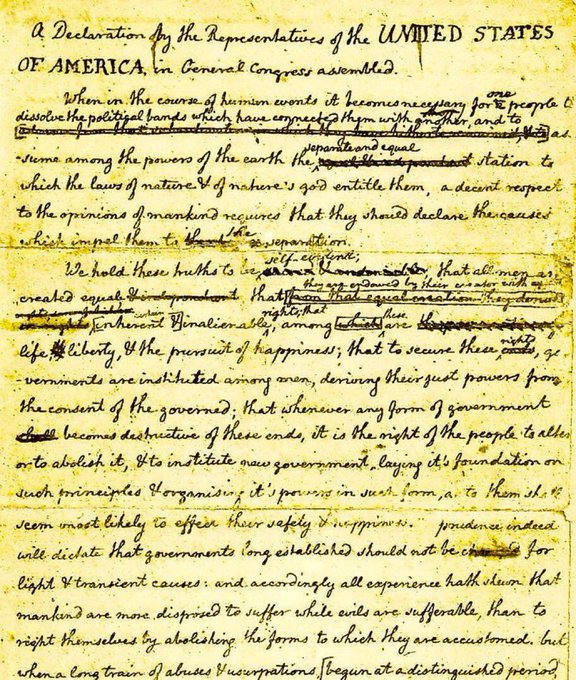 A Declaration by the Representatives of the UNITED STATES
OF AMERICA, in General Congress assembled.
When in the course of human events it becomes necessary for one people to
dissolve the political bands which have connected them with another, and to
as-
separate and equal
-sume among the powers of the earth the station to
which the laws of nature & of nature's god entitle them, a decent respect
to the opinions of mankind requires that they should declare the causes
which impel them to the separation.
self-evident;
We hold these truths to be that all men are
they are endowed by their creator with
created equal & independent, that from that equal creation they derive
certain rights; that these
[inherent & inalienable, among which are
life & liberty, & the pursuit of happiness; that to secure these rights, go-
-vernments are instituted among men, deriving their just powers from
the consent of the governed; that whenever any form of government
shall becomes destructive of these ends, it is the right of the people to alter
or to abolish it, & to institute new government, laying it's foundation on
such principles & organising it's powers in such form, as to them shall
seem most likely to effect their safety & happiness. prudence indeed
will dictate that governments long established should not be for
light & transient causes: and accordingly all experience hath shewn that
mankind are more disposed to suffer while evils are sufferable, than to
right themselves by abolishing the forms to which they are accustomed. but
when a long train of abuses & usurpations, [begun at a distinguished period,